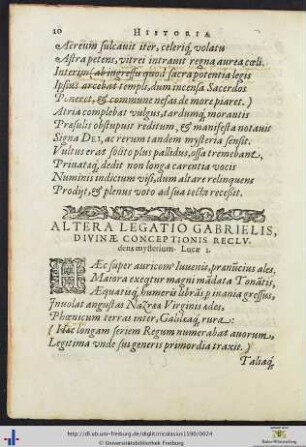 20 HISTORIA
Aëreum sulcauit iter, celeriq́; volatu
Astra petens, vitrei intrauit regna aurea cœli.
Interim (ab ingressu quod sacra potentia legis
Ipsius arcebat templi, dum incensa Sacerdos
Poneret, & commune nefas de more piaret.)
Atria complebat vulgus, tardumq́; morantis
Præsulis obstupuit reditum, & manifesta notauit
Signa DEI, ac rerum tandem mysteria sensit.
Vultus erat solito plus pallidus, ossa tremebant,
Priuataq́; dedit non longa carentia vocis
Numinis indicium visi, dum altare relinquens
Prodijt, & plenus voto ad sua tecta recessit.
ALTERA LEGATIO GABRIELIS,
DIVINÆ CONCEPTIONIS RECLV-
dens mysterium. Lucæ 1.
HÆc super auricomus Iuuenis, prænūcius ales,
Maiora exequitur magni mādata Tonātis,
Æquatisq́; humeris librās p inania gressus,
Inuolat angustas Nazreæ Virginis ædes,
Phœnicum terras inter, Galilæaq́; rura:
(Hæc longam seriem Regum numerabat auorum,
Legitima vnde sui generis primordia traxit.)
Taliaq́;
http://dl.ub.uni-freiburg.de/diglit/nicolausius1590/0024
© Universitätsbibliothek Freiburg
Baden-Württemberg